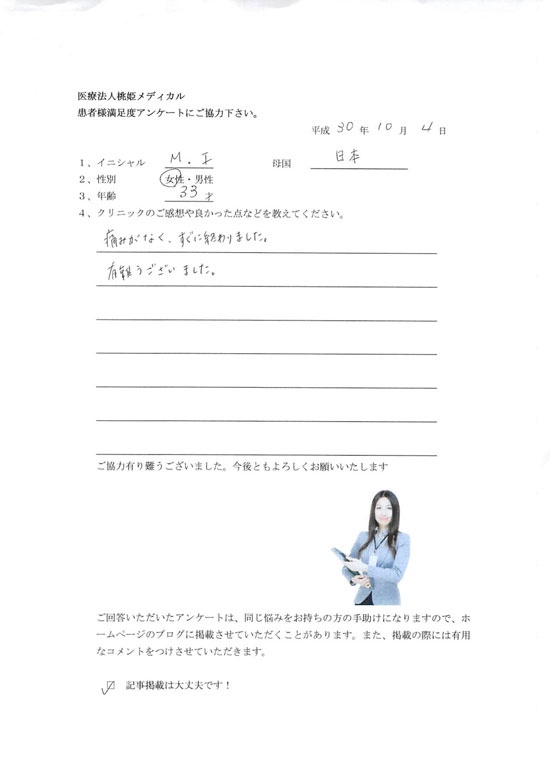 医療法人桃姫メディカル
患者様満足度アンケートにご協力下さい。
平成 30 年 10 月 4 日
1、イニシャル M.I 母国 日本
2、性別 女性・男性
3、年齢 33才
4、クリニックのご感想や良かった点などを教えてください。
痛みがなく、すぐに終わりました。
有難うございました。
ご協力有り難うございました。今後ともよろしくお願いいたします
ご回答いただいたアンケートは、同じ悩みをお持ちの方の手助けになりますので、ホ
ームページのブログに掲載させていただくことがあります。また、掲載の際には有用
なコメントをつけさせていただきます。
☑ 記事掲載は大丈夫です！